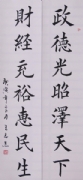 政德光昭澤天下
財經充裕惠民生